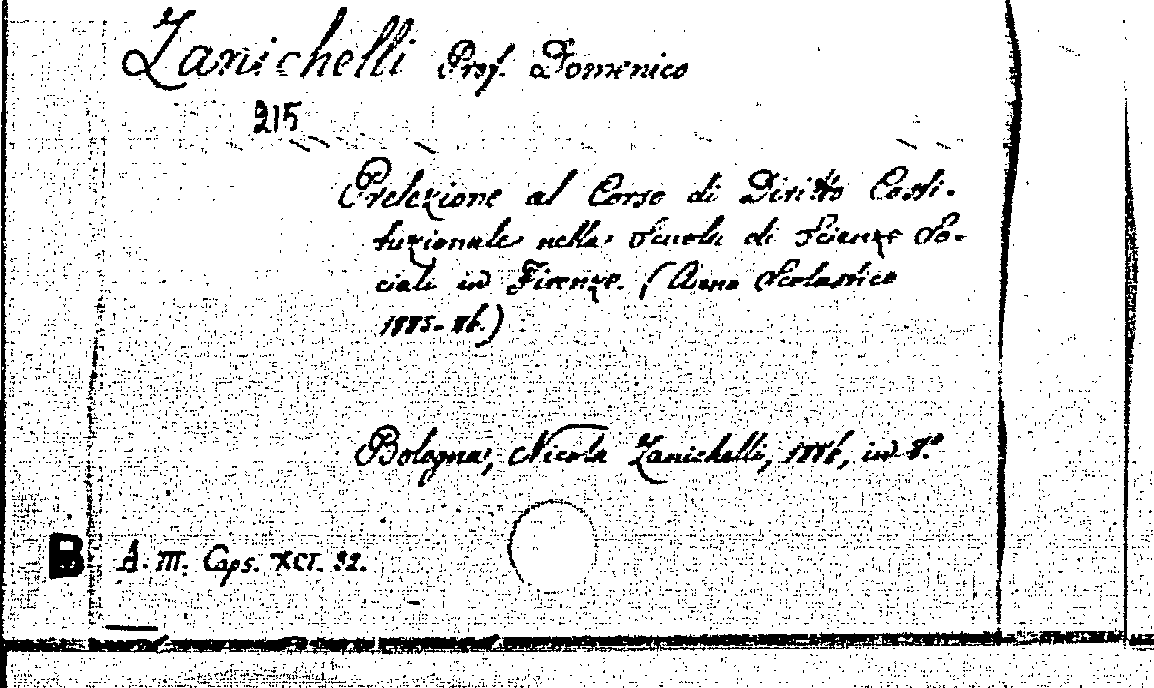 Zanichelli Prof. Domenico
215
Prelezione al Corso di Diritto Costi-
tuzionale nella Scuola di Scienze So-
ciali in Firenze. (Anno Scolastico
1885-86.)
Bologna, Nicola Zanichelli, 1886, in 8.°
B A. III. Caps. XCI. 32.